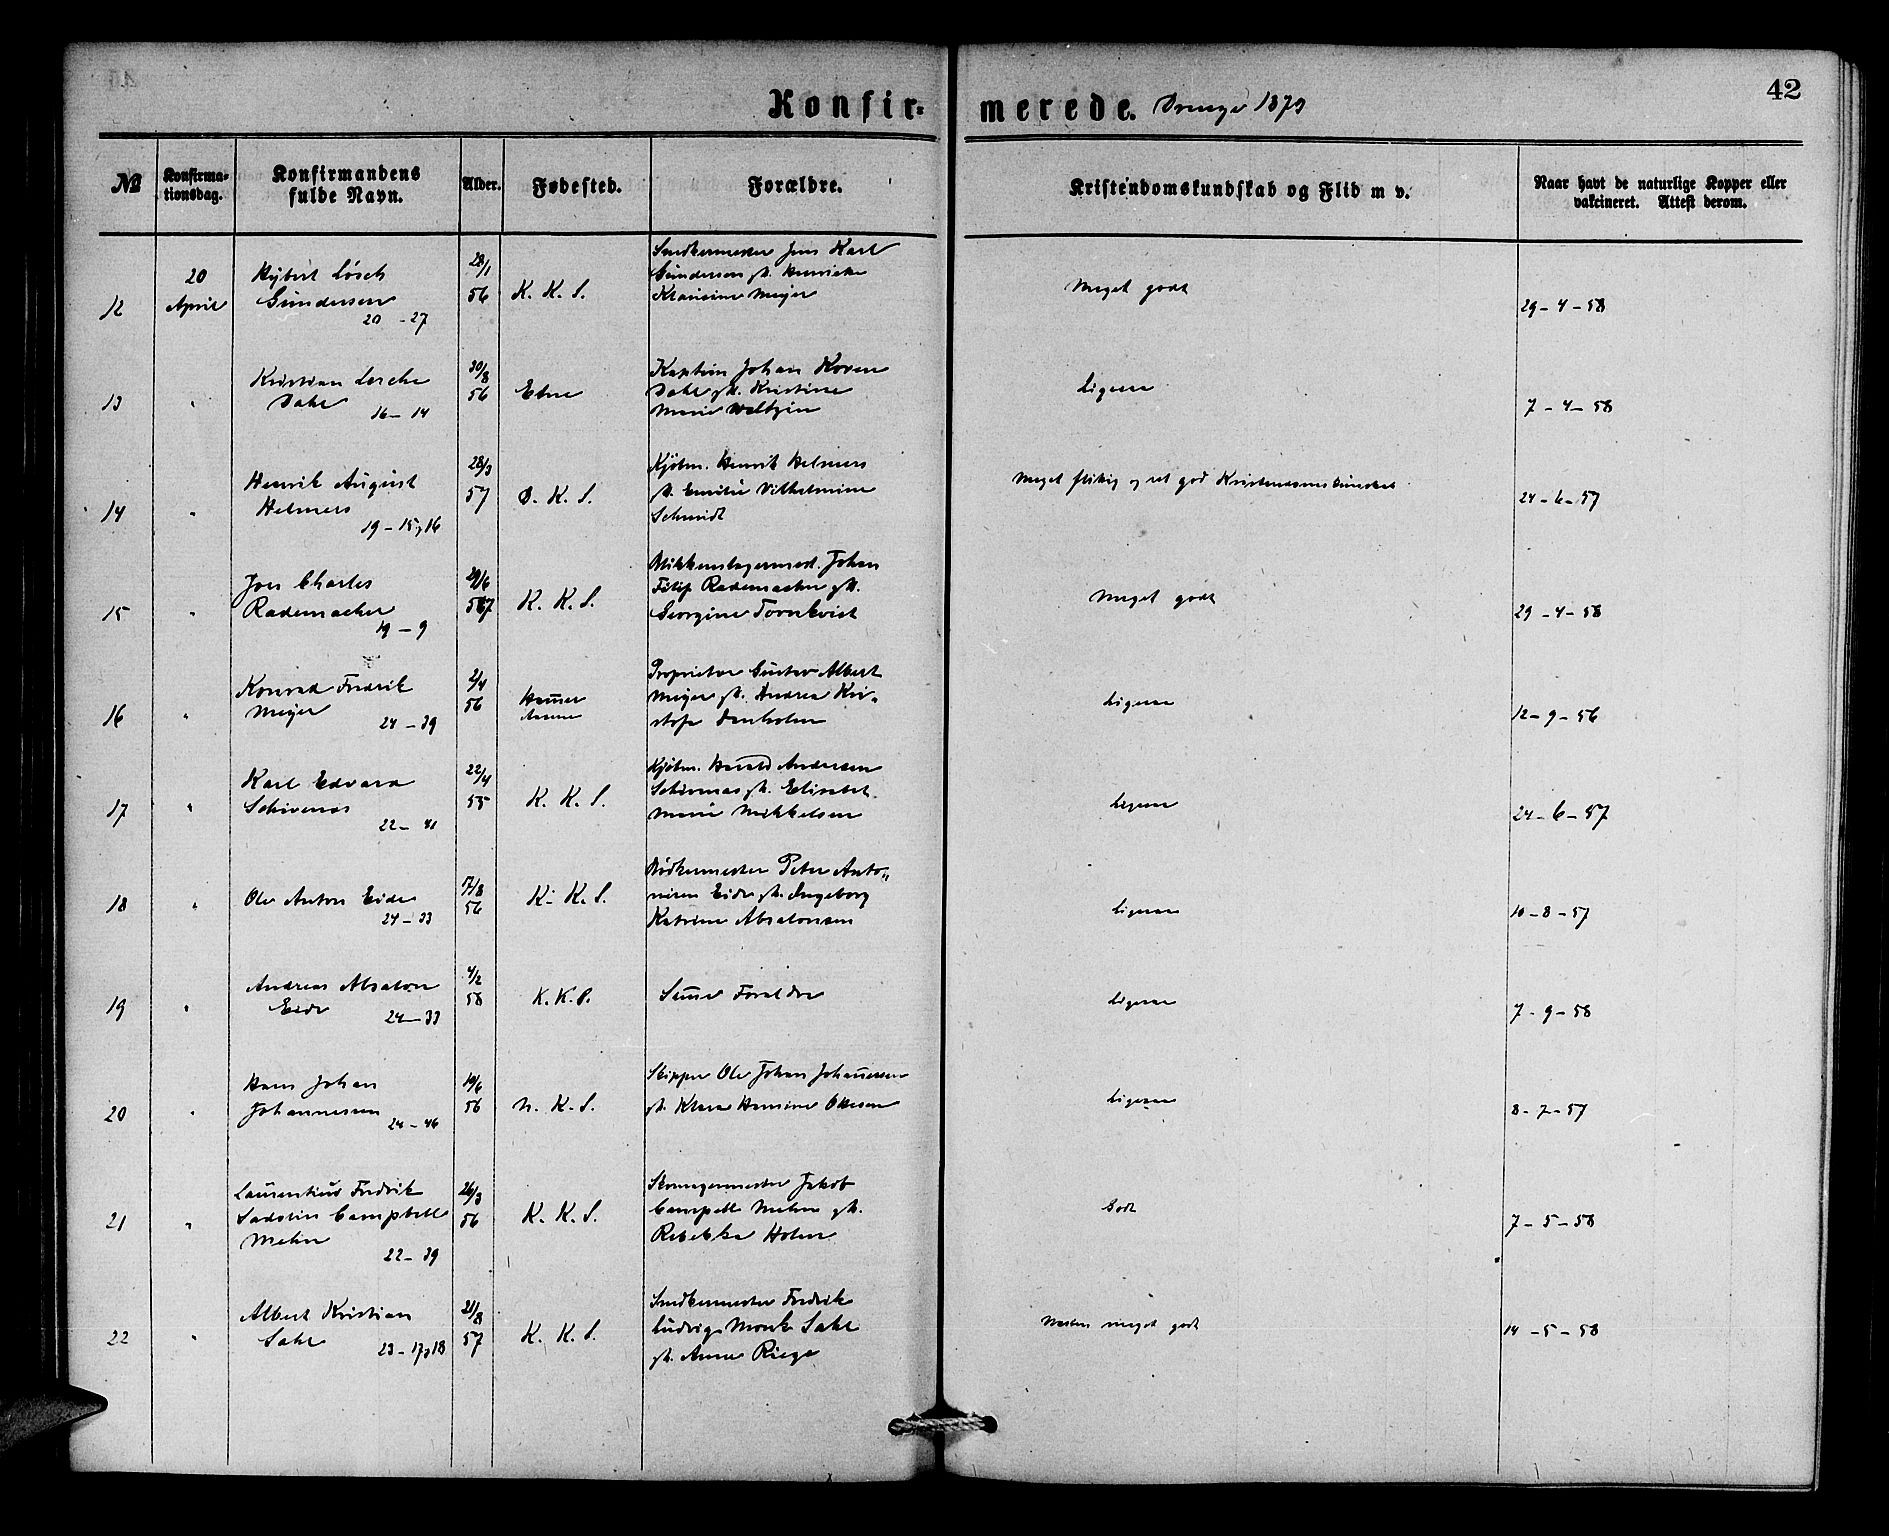 42
Konfir= merede. Drenge 1873
№
Konfirma-
tionsdag.
Konfirmandens
fulde Navn.
Alder.
Fødested.
Forældre.
Kristendomskundskab og Flid m v.
Naar havt de naturlige Kopper eller
vakcineret. Attest derom.
12
20
April
Gundersen
20 - 27
28/1
56
K. K. S.
Snedkermester Jens Karl
Gundersen gh. Henricke
Klausine Meyer
Meget godt
29 - 4 - 58
13
"
Kristian Lerche
Dahl
16 - 14
30/8
56
Etne
Kaptein Johan Koren
Dahl gh. Kristine
Marie Weltzin
Ligesaa
7 - 4 - 58
14
"
Henrik August
Helmers
19 - 15,16
28/3
57
D. K. S.
Kjøbm. Henrik Helmers
gh. Emilie Vilhelmine
Schmidt
Meget flittig og ret god Kristendomskundskab
24 - 6 - 57
15
"
Jon Charles
Rademacher
19 - 9
K. K. S.
Blikkenslagermest. Johan
Filip Rademacher gh.
Georgine Tornkvist
Meget godt
29 - 4 - 58
16
"
Konrad Fredrik
Meyer
24 - 39
2/4
56
Hammer
Proprietær Gustav Albert
Meyer gh. Andrea Kri"
stofa
Ligesaa
12 - 9 - 56
17
"
Karl Edvard
Schivenas
22 - 41
22/4
55
K. K. S.
Kjøbm. Harald Andersen
Schivenas gh. Elisabet
Marie Mikkelsen
Ligesaa
24 - 6 - 57
18
"
Ole Anton Eide
24 - 33
7/8
56
K. K. S.
Bødkermester Peter Anto"
nisen Eide gh. Ingeborg
Katrine Absalonsen
Ligesaa
10 - 8 - 57
19
"
Andreas Absalon
Eide
24 - 33
4/2
58
K. K. S.
Samme Forældre
Ligesaa
7 - 9 - 58
20
"
Hans Johan
Johannesen
24 - 46
19/6
56
N. K. S.
Skipper Ole Johan Johannesen
gh. Klara Hansine Ottesen
Ligesaa
8 - 7 - 57
21
"
Laurentius Fredrik
Sadolin Campbell
Mehn
22 - 39
26/3
56
K. K. S.
Skomagermester Jakob
Campell Mehn gh.
Rebekka Holm
Godt
7 - 5 - 58
22
"
Albert Kristian
Sahl
23 - 17,18
21/8
57
K. K. S.
Snedkermester Fredrik
Ludvig Monk Sahl
gh. Anne Riege
Næsten meget godt
14 - 5 - 58